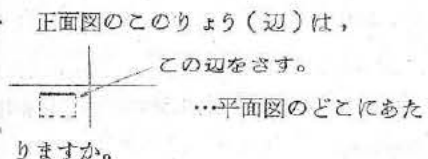 正面図のこのりょう（辺）は，
この辺をさす。
…平面図のどこにあた
りますか。